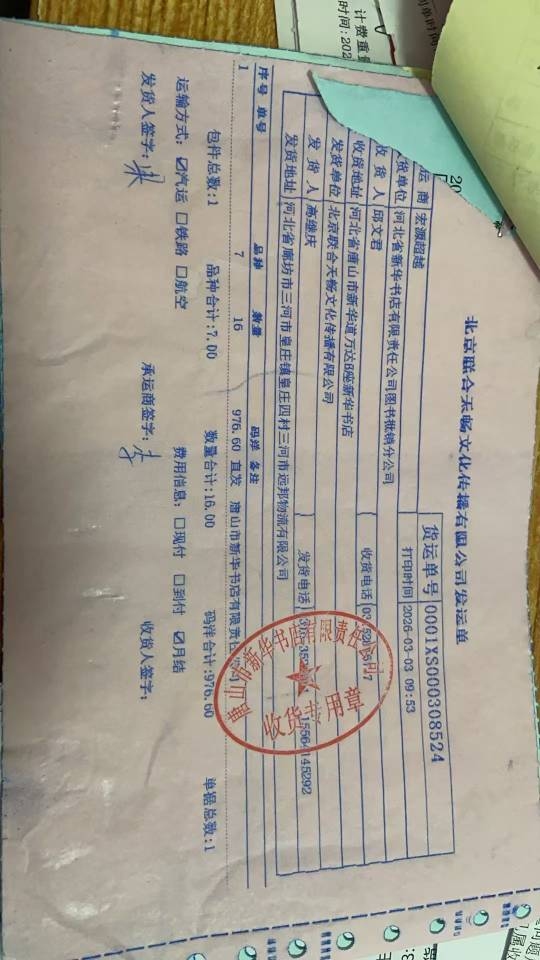 北京联合天畅文化传播有限公司发运单
货运单号 0001XS000308524
运 商 宏源超越
打印时间 2026-03-03 09:53
货单位 河北省新华书店有限责任公司图书批销分公司
收 货 人 邱文君
收货电话
收货地址 河北省唐山市新华道万达B座新华书店
发货单位 北京联合天畅文化传播有限公司
发 货 人 高继庆
发货电话 15564145292
发货地址 河北省廊坊市三河市皇庄镇皇庄四村三河市远邦物流有限公司
序号 单号 品种 数量 码洋 备注
1 7 16 976.60 直发 唐山市新华书店有限责任公司
包件总数:1 品种合计:7.00 数量合计:16.00 码洋合计:976.60 单据总数:1
运输方式: ☑汽运 □铁路 □航空 费用信息: □现付 □到付 ☑月结
发货人签字: 承运商签字: 收货人签字:
唐山市新华书店有限责任公司
收货专用章
计费重量
时间:202